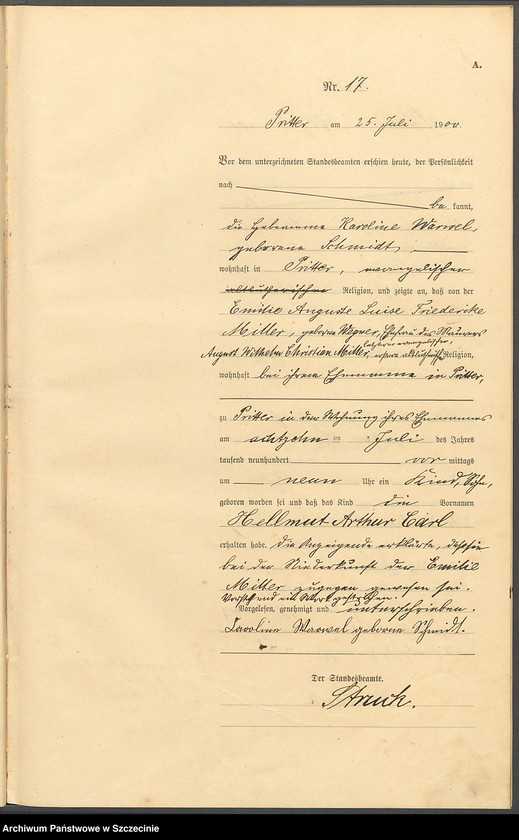 A.
Nr. 17.
Pritter am 25. Juli 1900.
Vor dem unterzeichneten Standesbeamten erschien heute, der Persönlichkeit
nach
be kannt,
die Hebamme Karoline Warwel,
geborene Schmidt,
wohnhaft in Pritter, evangelischer
altlutherischer Religion, und zeigte an, daß von der
Emilie Auguste Luise Friedericke
Mitter, geborene Wegner, Ehefrau des Maurers
letzterer evangelischer,
August Wilhelm Christian Mitter, erstere altlutherischer Religion,
wohnhaft bei ihrem Ehemanne in Pritter,
zu Pritter in der Wohnung ihres Ehemannes
am achtzehn ten Juli des Jahres
tausend neunhundert vor mittags
um neun Uhr ein Kind, Sohn,
geboren worden sei und daß das Kind die Vornamen
Hellmut Arthur Carl
erhalten habe. Die Anzeigende erklärte, daß sie
bei der Niederkunft der Emilie
Mitter zugegen gewesen sei.
Vorstehend ein Wort gestrichen.
Vorgelesen, genehmigt und unterschrieben.
Caroline Warwel geborne Schmidt.
Der Standesbeamte.
Struck.
Archiwum Państwowe w Szczecinie